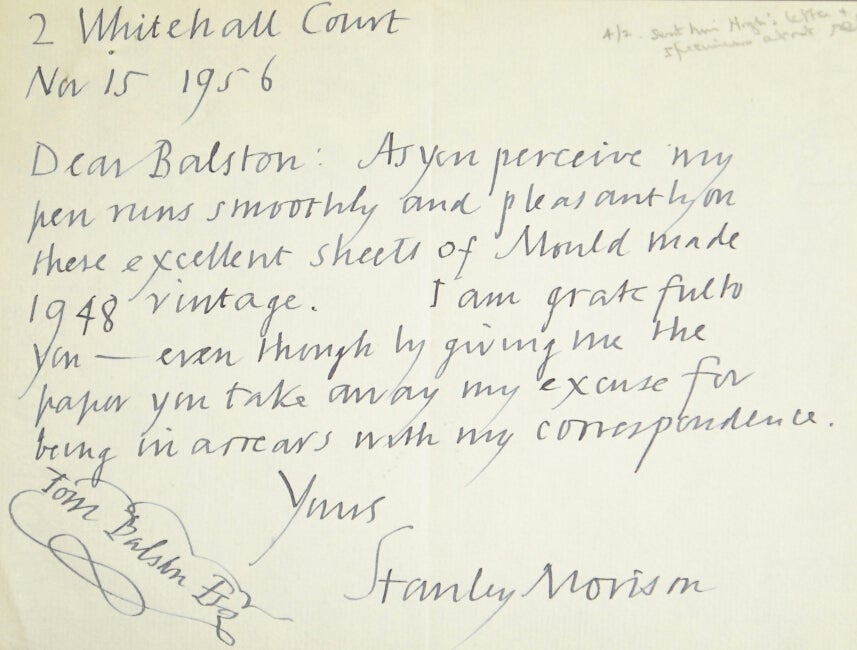 2 Whitehall Court
Nov 15 1956
4/2. Sent him Hugh's letter &
specimens about
Dear Balston: As you perceive my
pen runs smoothly and pleasantly on
these excellent sheets of Mould made
1948 vintage. I am grateful to
you — even though by giving me the
paper you take away my excuse for
being in arrears with my correspondence.
Yours
Stanley Morison
Tom Balston Esq